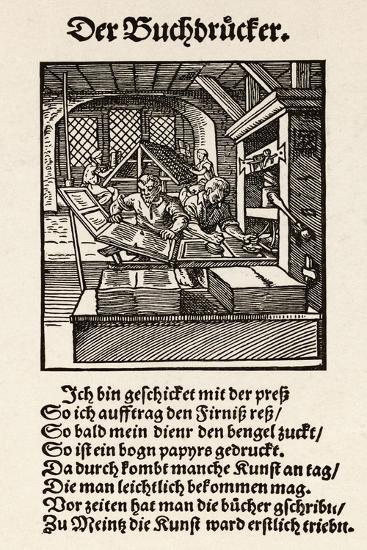 Der Buchdrůcker.
Ich bin geschicket mit der preß
So ich aufftrag den Firniß reß/
So bald mein dienr den bengel zuckt/
So ist ein bogn papyrs gedruckt.
Da durch kombt manche Kunst an tag/
Die man leichtlich bekommen mag.
Vor zeiten hat man die bücher gschribn/
Zu Meintz die Kunst ward erstlich triebn.